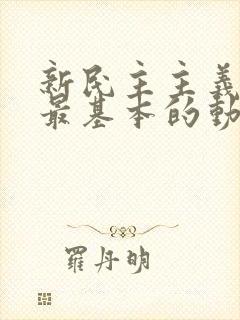 新民主主義
最基本的動
羅丹明